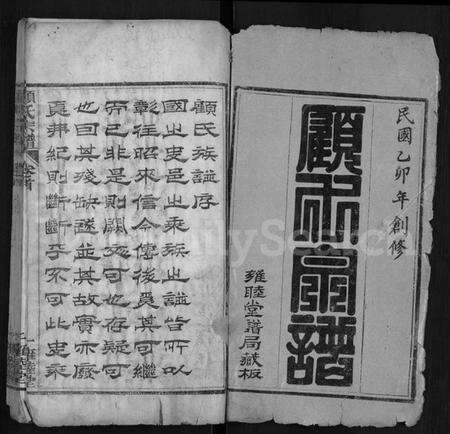 民國乙卯年創修
顧氏宗譜
雍睦堂譜局藏板
顧氏族譜序
國之史邑之乘族之譜皆所以
彰往昭來信今傳後爲其可繼
而已非是則闕可也存疑可
也因其殘缺遂並其故實亦廢
夏邦紀則斷斷乎不可此史乘
顧氏宗譜 卷首 一 雍睦堂
FamilySearch